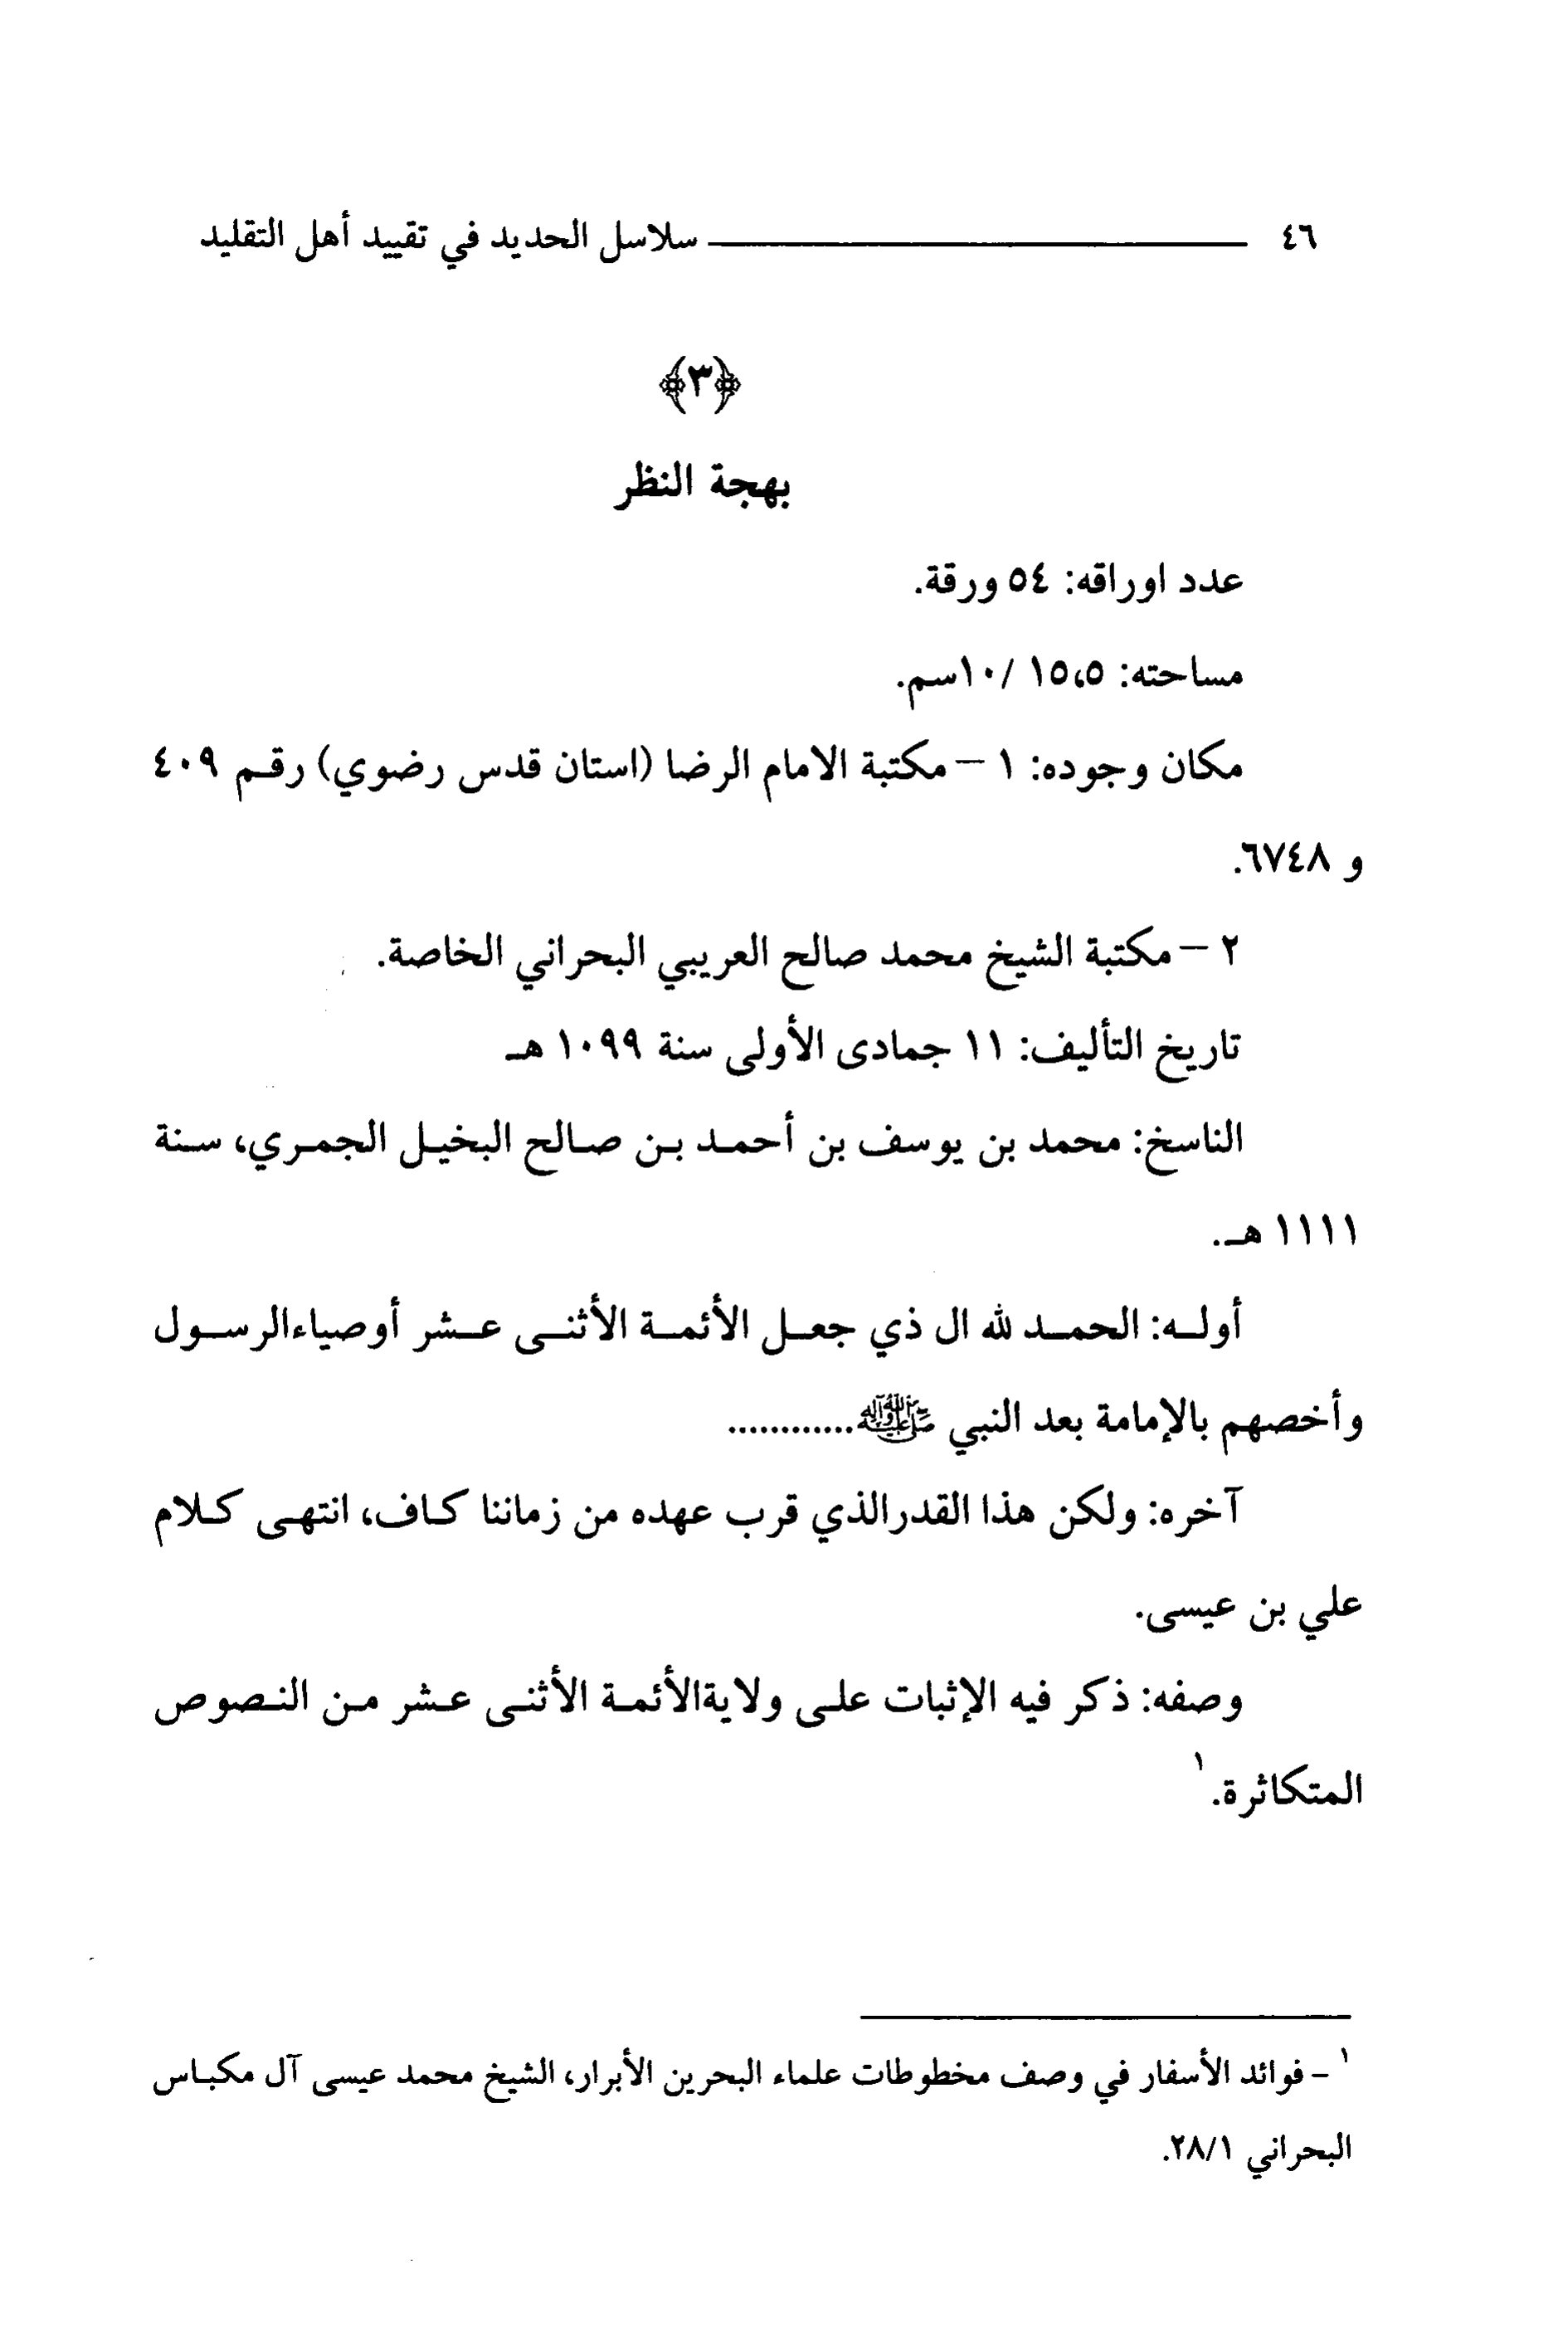 ٤٦ سلاسل الحديد في تقييد أهل التقليد
﴿٣﴾
بهجة النظر
عدد اوراقه: ٥٤ ورقة.
مساحته: ١٥،٥ /١٠سم.
مكان وجوده: ١ – مكتبة الامام الرضا (استان قدس رضوي) رقم ٤٠٩
و ٦٧٤٨.
٢ – مكتبة الشيخ محمد صالح العريبي البحراني الخاصة.
تاريخ التأليف: ١١ جمادى الأولى سنة ١٠٩٩ هـ
الناسخ: محمد بن يوسف بن أحمد بن صالح البخيل الجمري، سنة
١١١١ هـ.
أوله: الحمد لله ال ذي جعل الأئمة الأثنى عشر أوصياءالرسول
وأخصهم بالإمامة بعد النبي ﷺ............
آخره: ولكن هذا القدرالذي قرب عهده من زماننا كاف، انتهى كلام
علي بن عيسى.
وصفه: ذكر فيه الإثبات على ولايةالأئمة الأثنى عشر من النصوص
المتكاثرة.١
١ - فوائد الأسفار في وصف مخطوطات علماء البحرين الأبرار، الشيخ محمد عيسى آل مكباس
البحراني ٢٨/١.